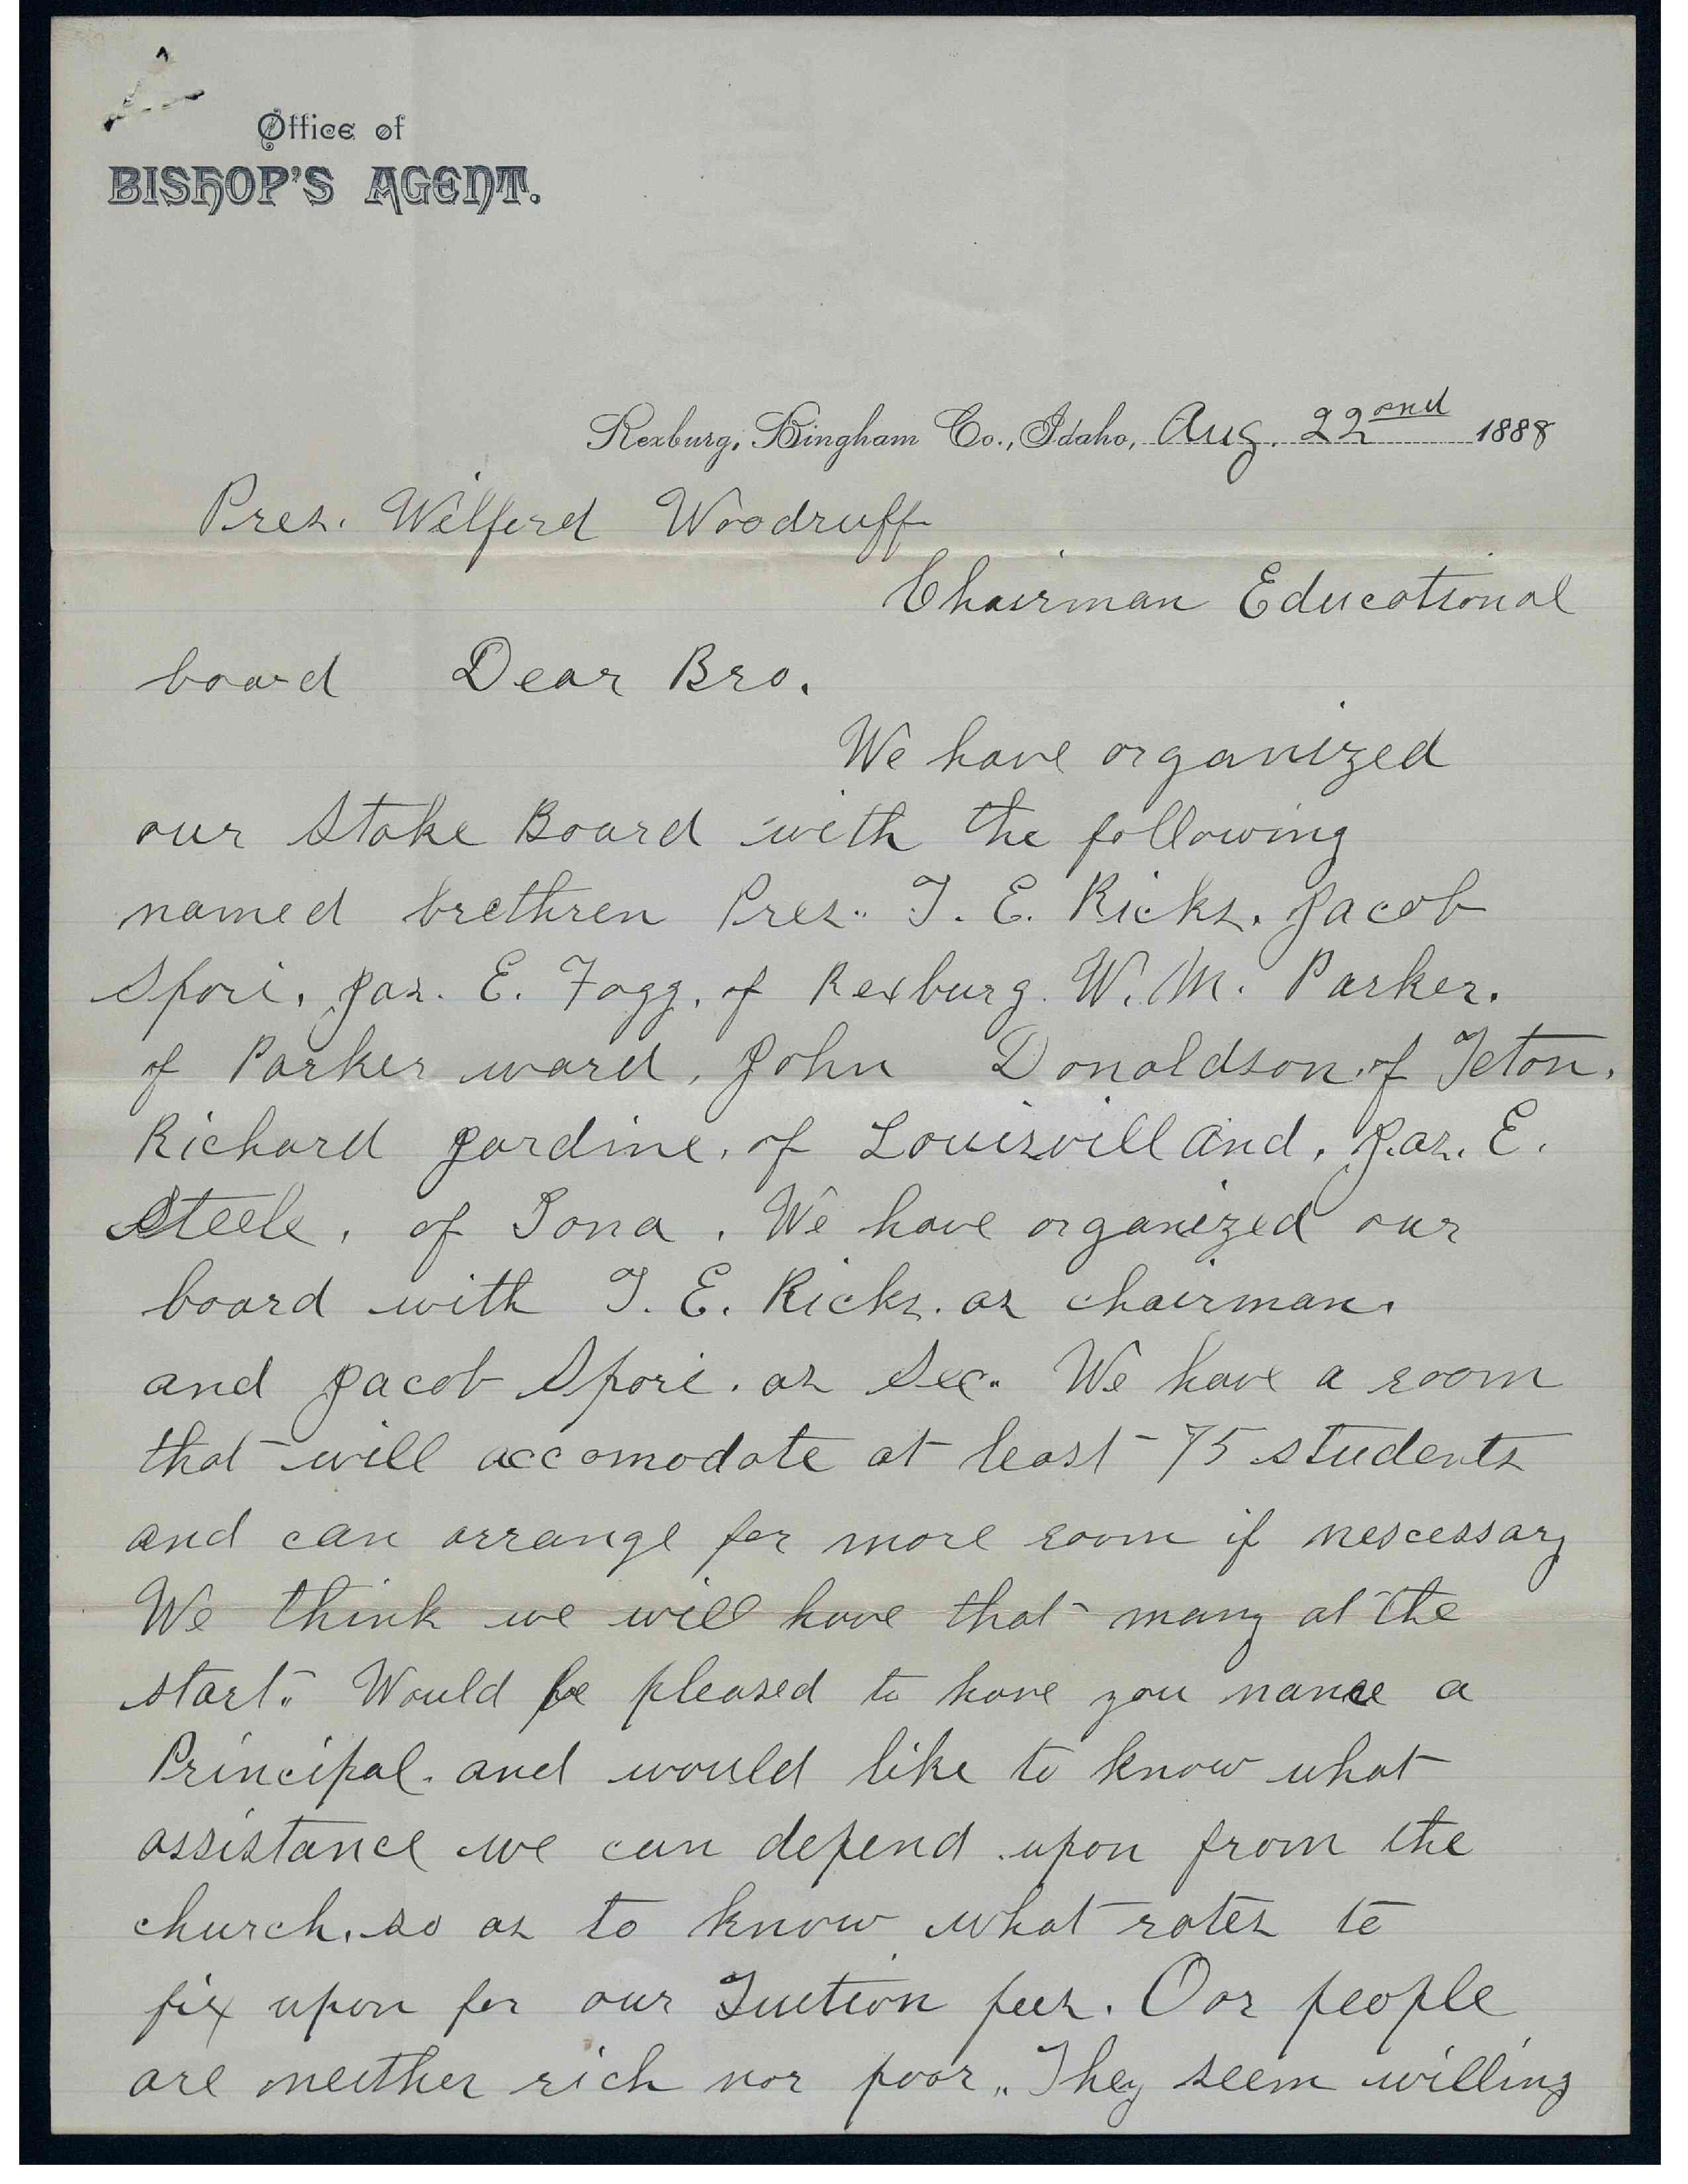 Office of
BISHOP'S AGENT.
Rexburg, Bingham Co., Idaho, Aug. 22nd 1888
Pres. Wilferd Woodruff
Chairman Educational
board Dear Bro.
We have organized
our Stake Board with the following
named brethren Pres.. T. E. Ricks. Jacob
Spori. Jas. E. Fogg. of Rexburg. W. M. Parker.
of Parker ward, John Donaldson, of Teton.
Richard Jardine. of Louisvill and. Jas. E.
Steele. of Iona. We have organized our
board with T. E. Ricks. as chairman.
and Jacob Spori. as Sec.. We have a room
that will accomodate at least 75 students
and can arrange for more room if nescessary
We think we will have that many at the
start.. Would be pleased to have you name a
Principal. and would like to know what
assistance we can depend upon from the
church. so as to know what rates to
fix upon for our Tuition fees. Our people
are neither rich nor poor.. They seem willing